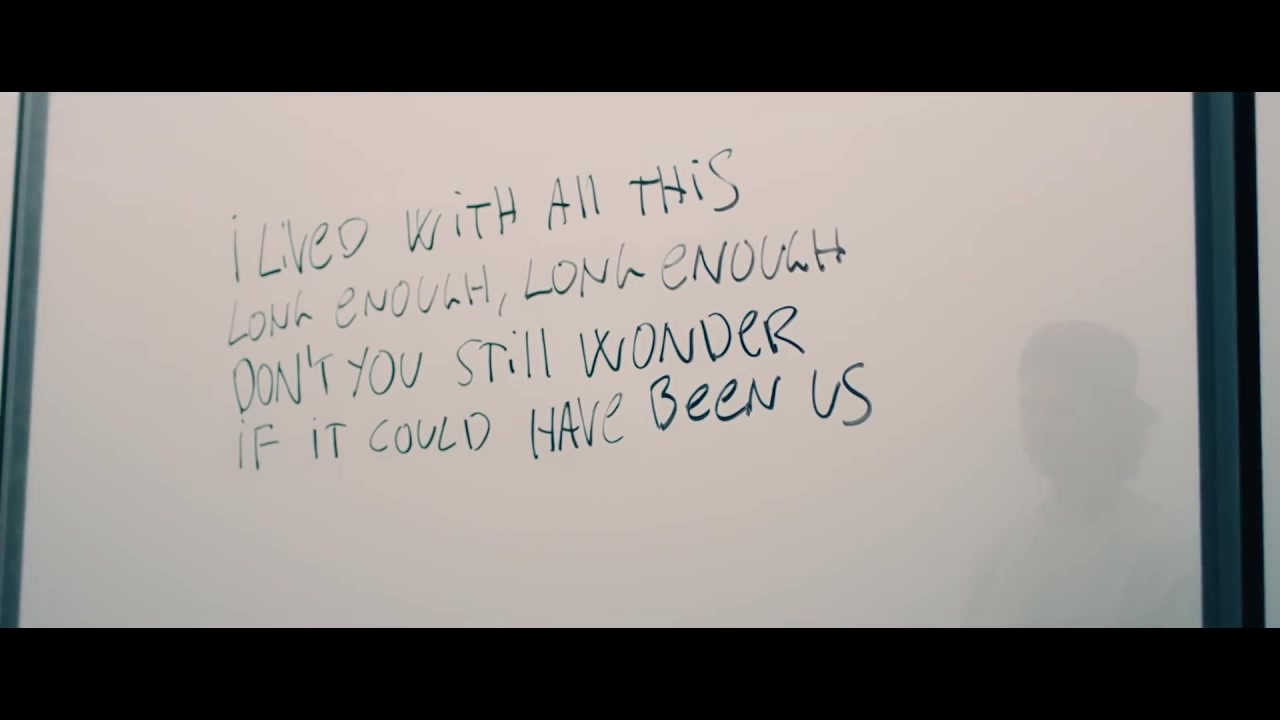 i LiveD WiTH All THiS
LONG eNOUGH, LONG eNOUGH
DON'T YOU STill WONDeR
iF iT COULD HAVe BeeN US